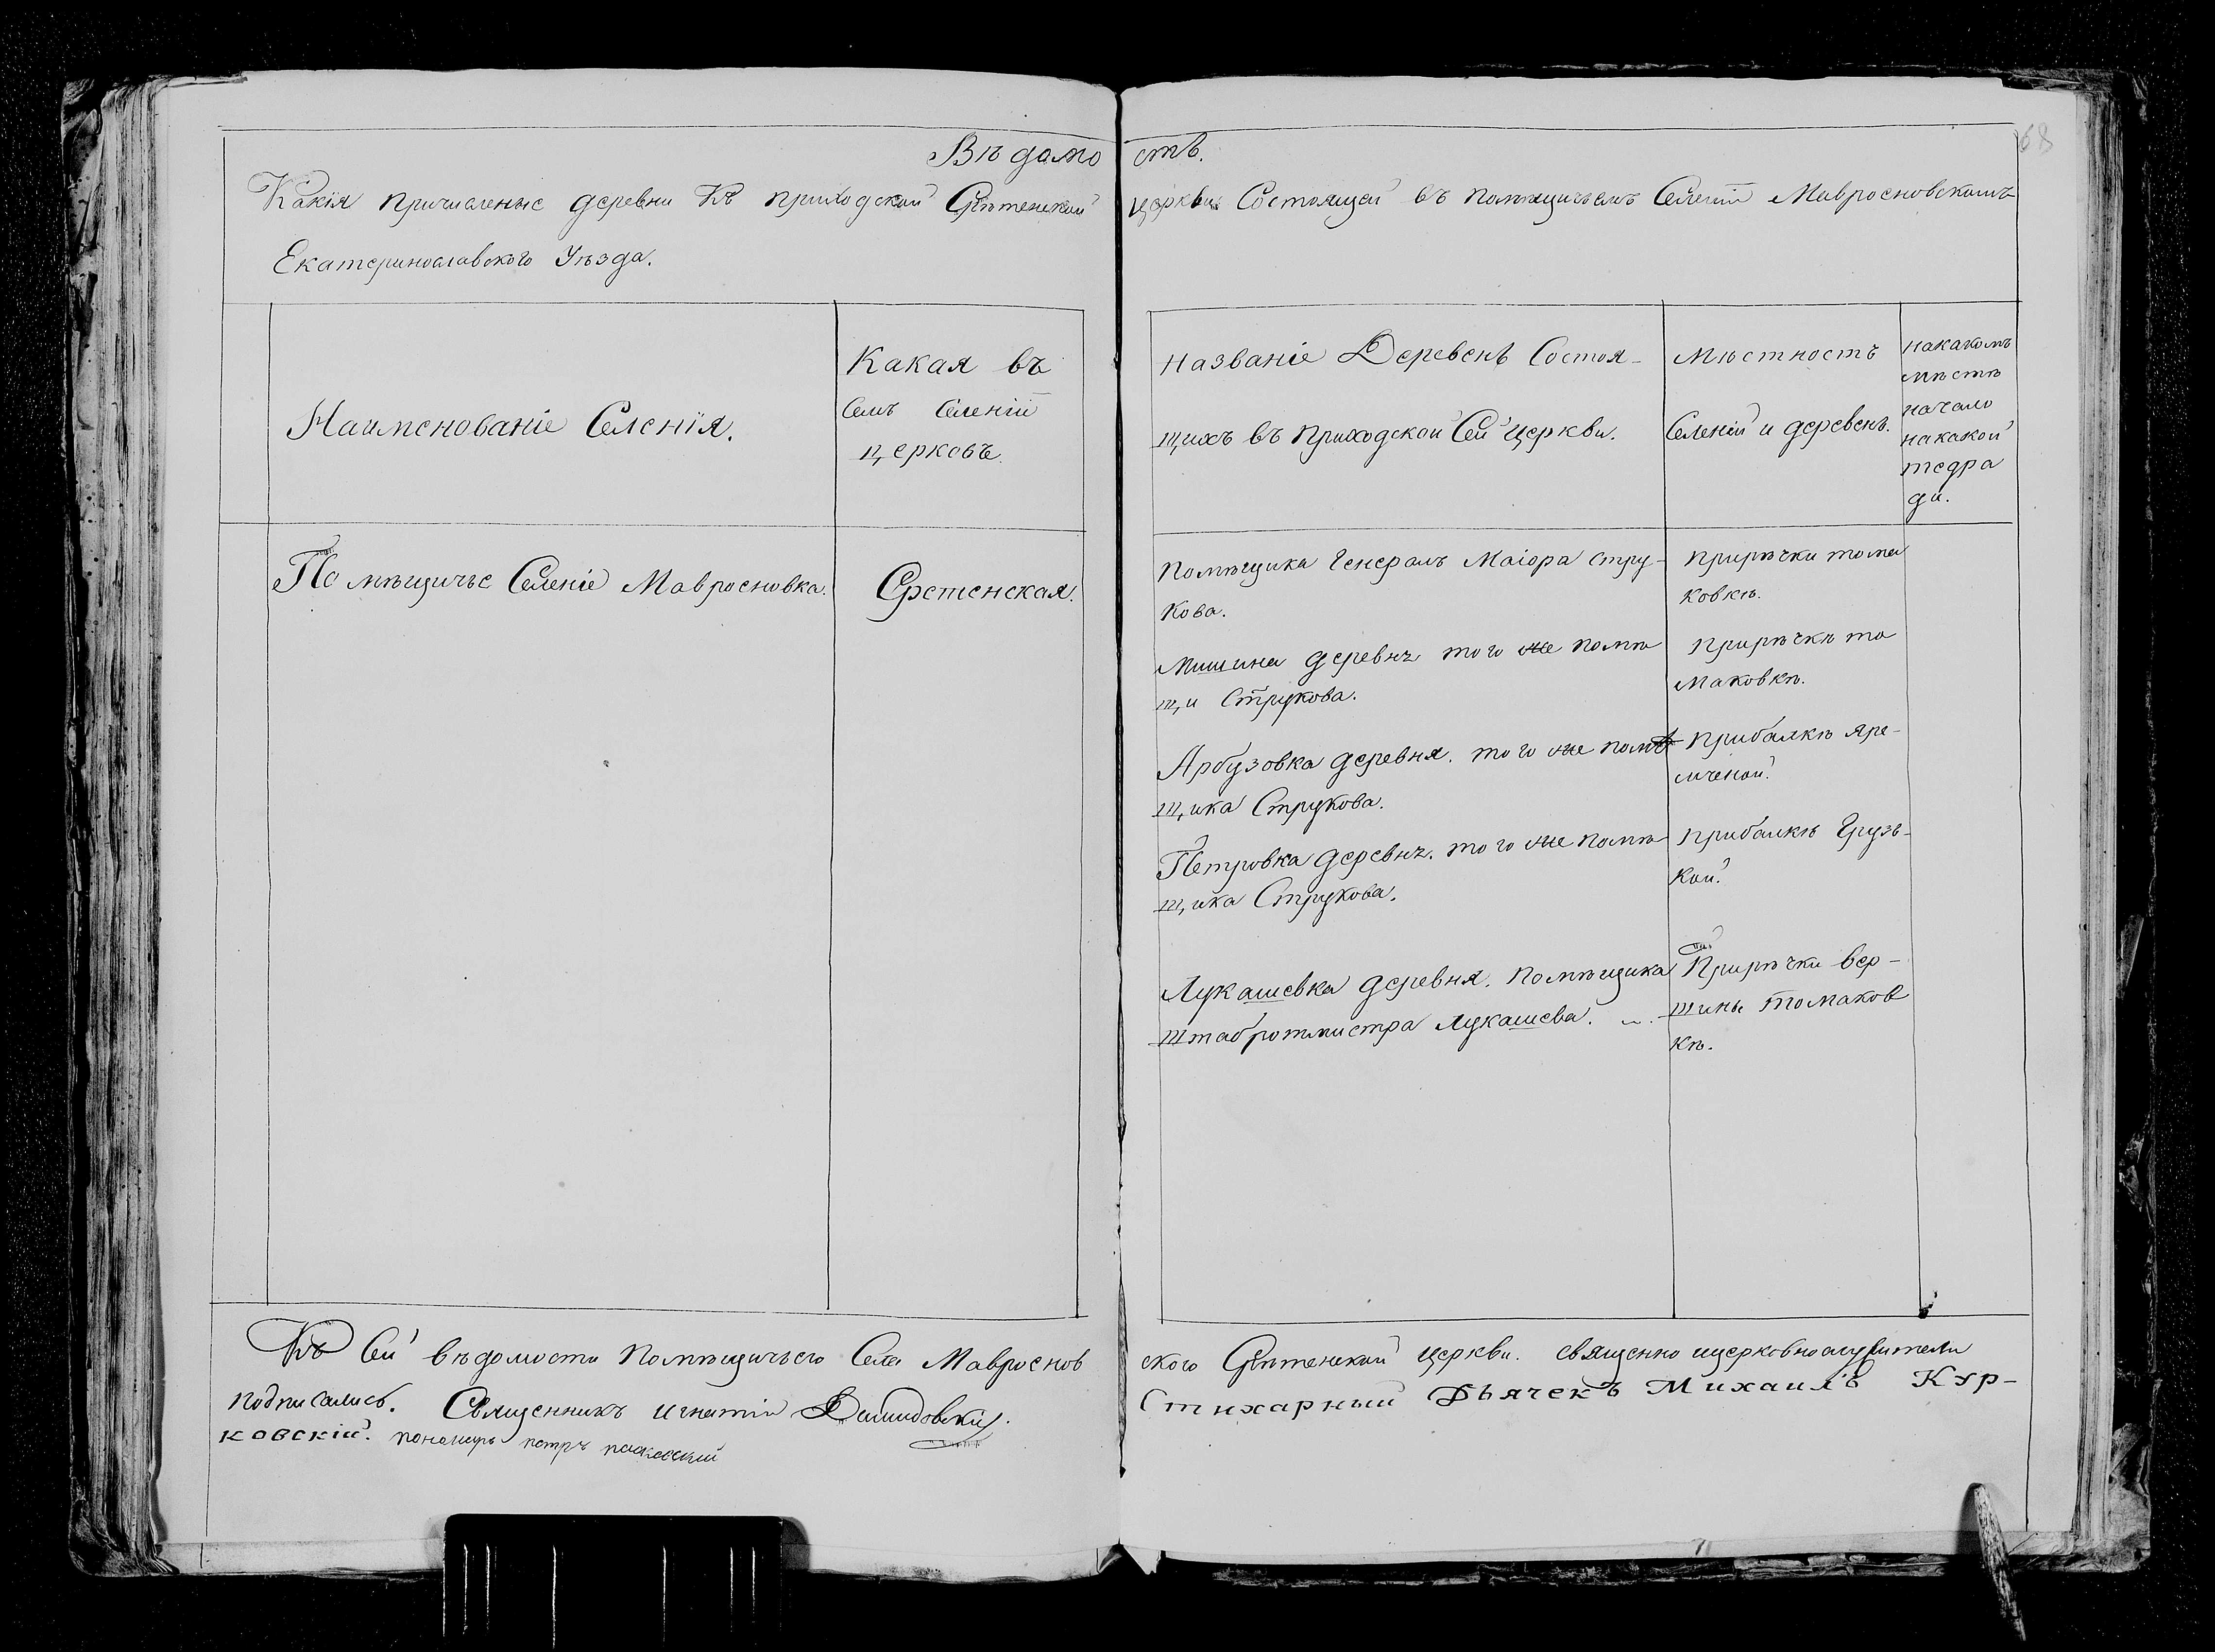 68
Вѣдомость.
Какія причисленые деревни Къ приходской Срѣтенской церкви Состоящей въ помѣщичьемъ Селеніи Мавросновскомъ
Екатеринославского Уѣзда.
Наименованіе Селенія.
Какая въ
Семъ Селеніи
церковь.
Названіе Деревень Состоя-
щихъ въ приходской Сей Церкви.
Мѣстность
Селеній и деревень.
на какомъ
мѣстѣ
начало
на какой
тедра
ди.
Помѣщичье Селеніе Мавросновка.
Сретенская.
Помѣщика Генералъ Маіора Стру-
кова.
при рѣчки тома
ковкѣ.
Мишина деревнъ того же помѣ
щи Струкова.
при рѣчкѣ то
маковкѣ.
Арбузовка деревня. того же помѣ
щика Струкова.
при балкѣ Яре-
мченой.
Петровка деревнъ. того же помѣ
щика Струкова.
при балкѣ Грузь-
кой.
Лукашевка деревня. помѣщика
Штабротмистра Лукашева.
При рѣчки вер-
шины томаков
кѣ.
Къ Сей вѣдомости помѣщичьего Села Мавроснов ского Срѣтенской церкви. священно ицерковнослужители
подписались. Священникъ Игнатій Демидовскій. Стихарный Дьячекъ Михаилъ Кур-
ковскій. пономарь петръ